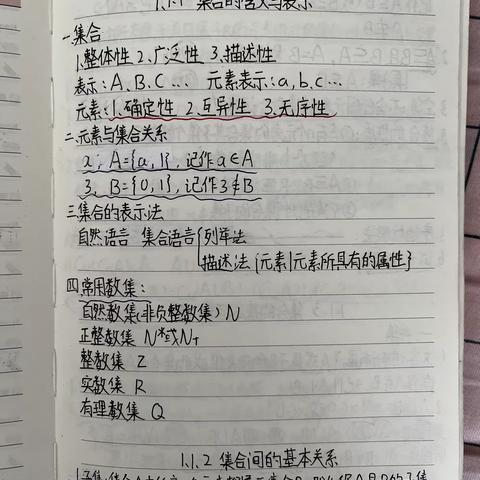 1.1.1 集合的含义与表示
一.集合
1.整体性 2.广泛性 3.描述性
表示:A、B、C … 元素表示:a,b,c…
元素:1.确定性 2.互异性 3.无序性
二.元素与集合关系
a、A={a,1},记作a∈A
3、B={0,1},记作3∉B
三.集合的表示法
自然语言 集合语言{列举法
描述法{元素|元素所具有的属性}
四.常用数集:
自然数集(非负整数集)N
正整数集 N*或N+
整数集 Z
实数集 R
有理数集 Q
1.1.2 集合间的基本关系